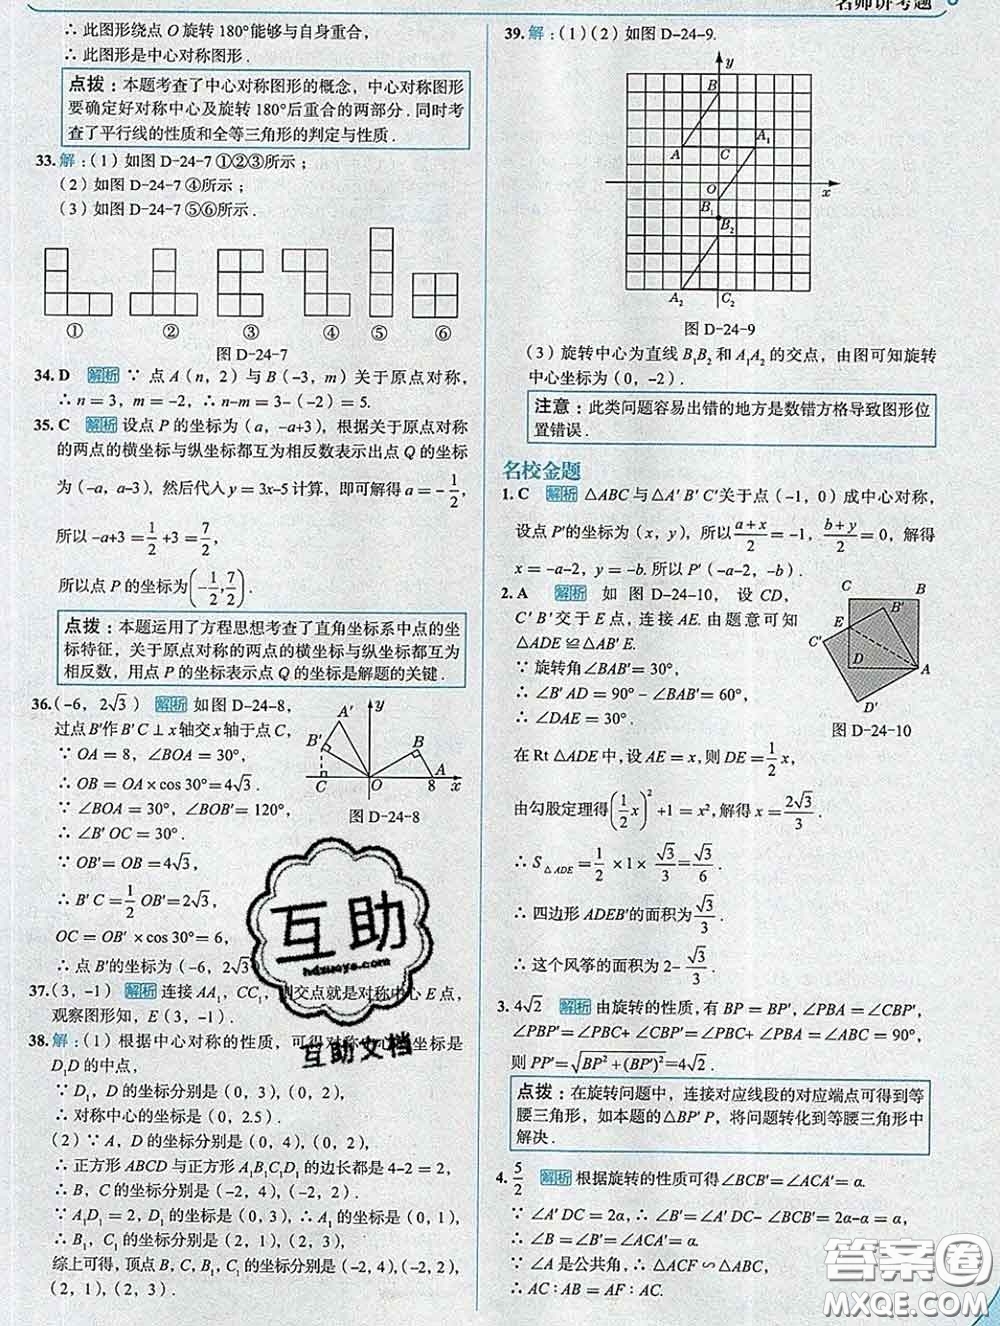 名师讲考题
∴ 此图形绕点 O 旋转 180°能够与自身重合,
∴ 此图形是中心对称图形.
点拨:本题考查了中心对称图形的概念,中心对称图形
要确定好对称中心及旋转 180°后重合的两部分.同时考
查了平行线的性质和全等三角形的判定与性质.
33.解:(1)如图 D-24-7 ①②③所示;
(2)如图 D-24-7 ④所示;
(3)如图 D-24-7 ⑤⑥所示.
① ② ③ ④ ⑤ ⑥
图 D-24-7
34.D 解析 ∵ 点 A(n,2)与 B(-3,m)关于原点对称,
∴ n=3,m=-2,∴ n-m=3-(-2)=5.
35.C 解析 设点 P 的坐标为(a,-a+3),根据关于原点对称
的两点的横坐标与纵坐标都互为相反数表示出点 Q 的坐标
为(-a,a-3),然后代入 y=3x-5 计算,即可解得 a=-1/2,
所以 -a+3=1/2+3=7/2,
所以点 P 的坐标为(-1/2,7/2).
点拨:本题运用了方程思想考查了直角坐标系中点的坐
标特征,关于原点对称的两点的横坐标与纵坐标都互为
相反数,用点 P 的坐标表示点 Q 的坐标是解题的关键.
36.(-6,2√3) 解析 如图 D-24-8,
过点 B′作 B′C⊥x 轴交 x 轴于点 C,
∵ OA=8,∠BOA=30°,
∴ OB=OA×cos 30°=4√3.
∵ ∠BOA=30°,∠BOB′=120°,
∴ ∠B′OC=30°.
∵ OB′=OB=4√3,
∴ B′C=1/2 OB′=2√3,
OC=OB′×cos 30°=6,
∴ 点 B′的坐标为(-6,2√3
A′ y B′ B A C O 8 x
图 D-24-8
37.(3,-1) 解析 连接 AA₁,CC₁,则交点就是对称中心 E 点,
观察图形知,E(3,-1).
38.解:(1)根据中心对称的性质,可得对称中心 坐标是
D₁D 的中点,
∵ D₁,D 的坐标分别是(0,3),(0,2),
∴ 对称中心的坐标是(0,2.5).
(2)∵ A,D 的坐标分别是(0,4),(0,2),
∴ 正方形 ABCD 与正方形 A₁B₁C₁D₁的边长都是 4-2=2,
∴ B,C 的坐标分别是(-2,4),(-2,2),
∵ A₁D₁=2,D₁的坐标是(0,3),∴ A₁的坐标是(0,1),
∴ B₁,C₁的坐标分别是(2,1),(2,3),
综上可得,顶点 B,C,B₁,C₁的坐标分别是(-2,4),(-2,2),
(2,1),(2,3).
39.解:(1)(2)如图 D-24-9.
y B A C A₁ O x B₁ B₂ A₂ C₂
图 D-24-9
(3)旋转中心为直线 B₁B₂ 和 A₁A₂ 的交点,由图可知旋转
中心坐标为(0,-2).
注意:此类问题容易出错的地方是数错方格导致图形位
置错误.
名校金题
1.C 解析 △ABC 与△A′B′C′关于点(-1,0)成中心对称,
设点 P′的坐标为(x,y),所以(a+x)/2=-1,(b+y)/2=0,解得
x=-a-2,y=-b.所以 P′(-a-2,-b).
2.A 解析 如图 D-24-10,设 CD,
C′B′交于 E 点,连接 AE.由题意可知
△ADE≌△AB′E.
∵ 旋转角∠BAB′=30°,
∴ ∠B′AD=90°-∠BAB′=60°,
∴ ∠DAE=30°.
C B E B′ C′ D A D′
图 D-24-10
在 Rt△ADE 中,设 AE=x,则 DE=1/2 x,
由勾股定理得(1/2 x)²+1=x²,解得 x=2√3/3.
∴ S△ADE=1/2×1×√3/3=√3/6.
∴ 四边形 ADEB′的面积为√3/3.
∴ 这个风筝的面积为 2-√3/3.
3.4√2 解析 由旋转的性质,有 BP=BP′,∠PBA=∠CBP′,
∠PBP′=∠PBC+∠CBP′=∠PBC+∠PBA=∠ABC=90°,
则 PP′=√(BP²+(BP′)²)=4√2.
点拨:在旋转问题中,连接对应线段的对应端点可得到等
腰三角形,如本题的△BP′P,将问题转化到等腰三角形中
解决.
4.5/2 解析 根据旋转的性质可得∠BCB′=∠ACA′=α.
∵ ∠A′DC=2α,∴ ∠B=∠A′DC-∠BCB′=2α-α=α,
∴ ∠B=∠B′=∠ACA′=α.
∵ ∠A 是公共角,∴ △ACF∽△ABC,
∴ AC:AB=AF:AC.
互助
hdzuoye.com
互助文档
答案圈
MXQE.COM